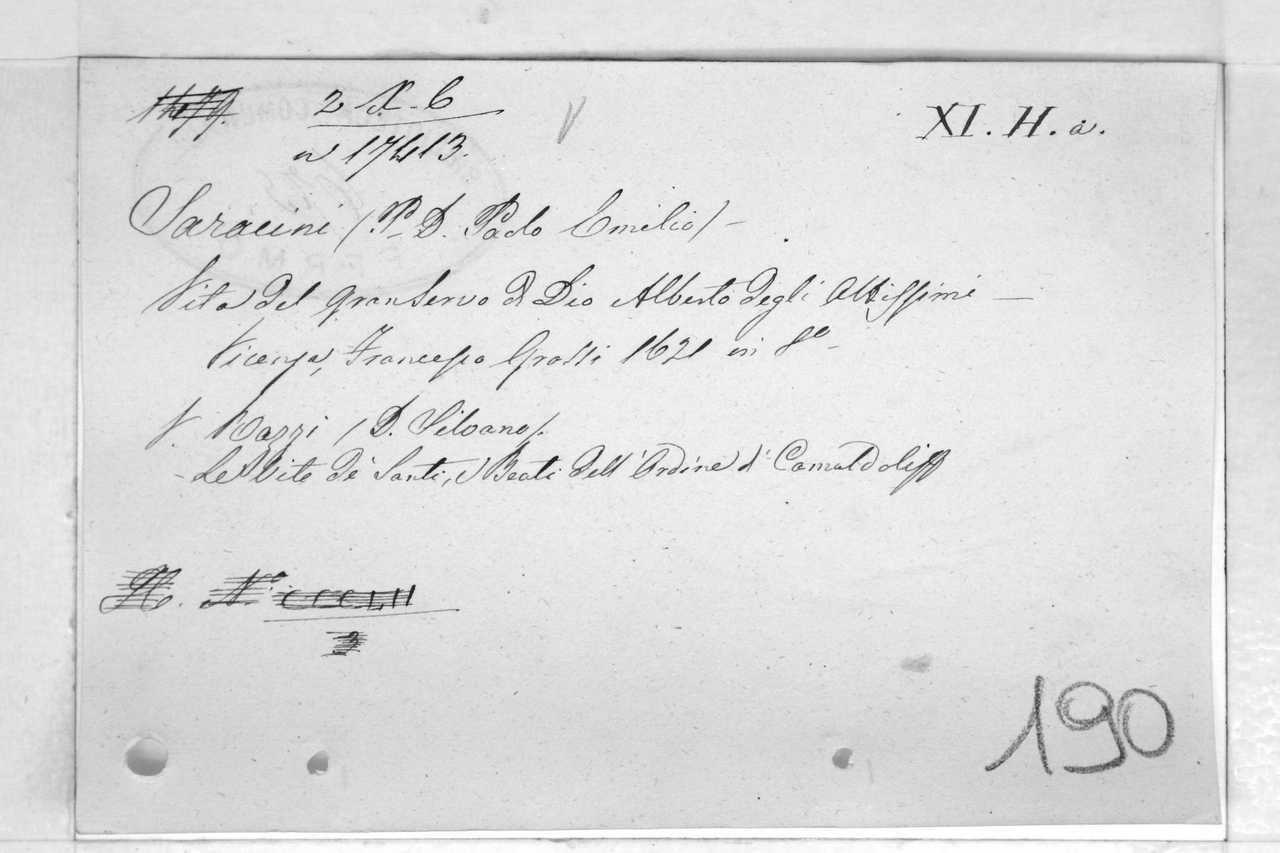 2 X. 6
XI. H. a.
n 17413.
Saracini (P. D. Paolo Emilio) -
Vita del gran Servo di Dio Alberto degli Altissimi —
Vicenza, Francesco Grossi 1621 in 8º -
V. Razzi (D. Silvano).
- Le Vite de' Santi, e Beati dell' Ordine di Camaldoli
H. Nº CCCLII
3
190